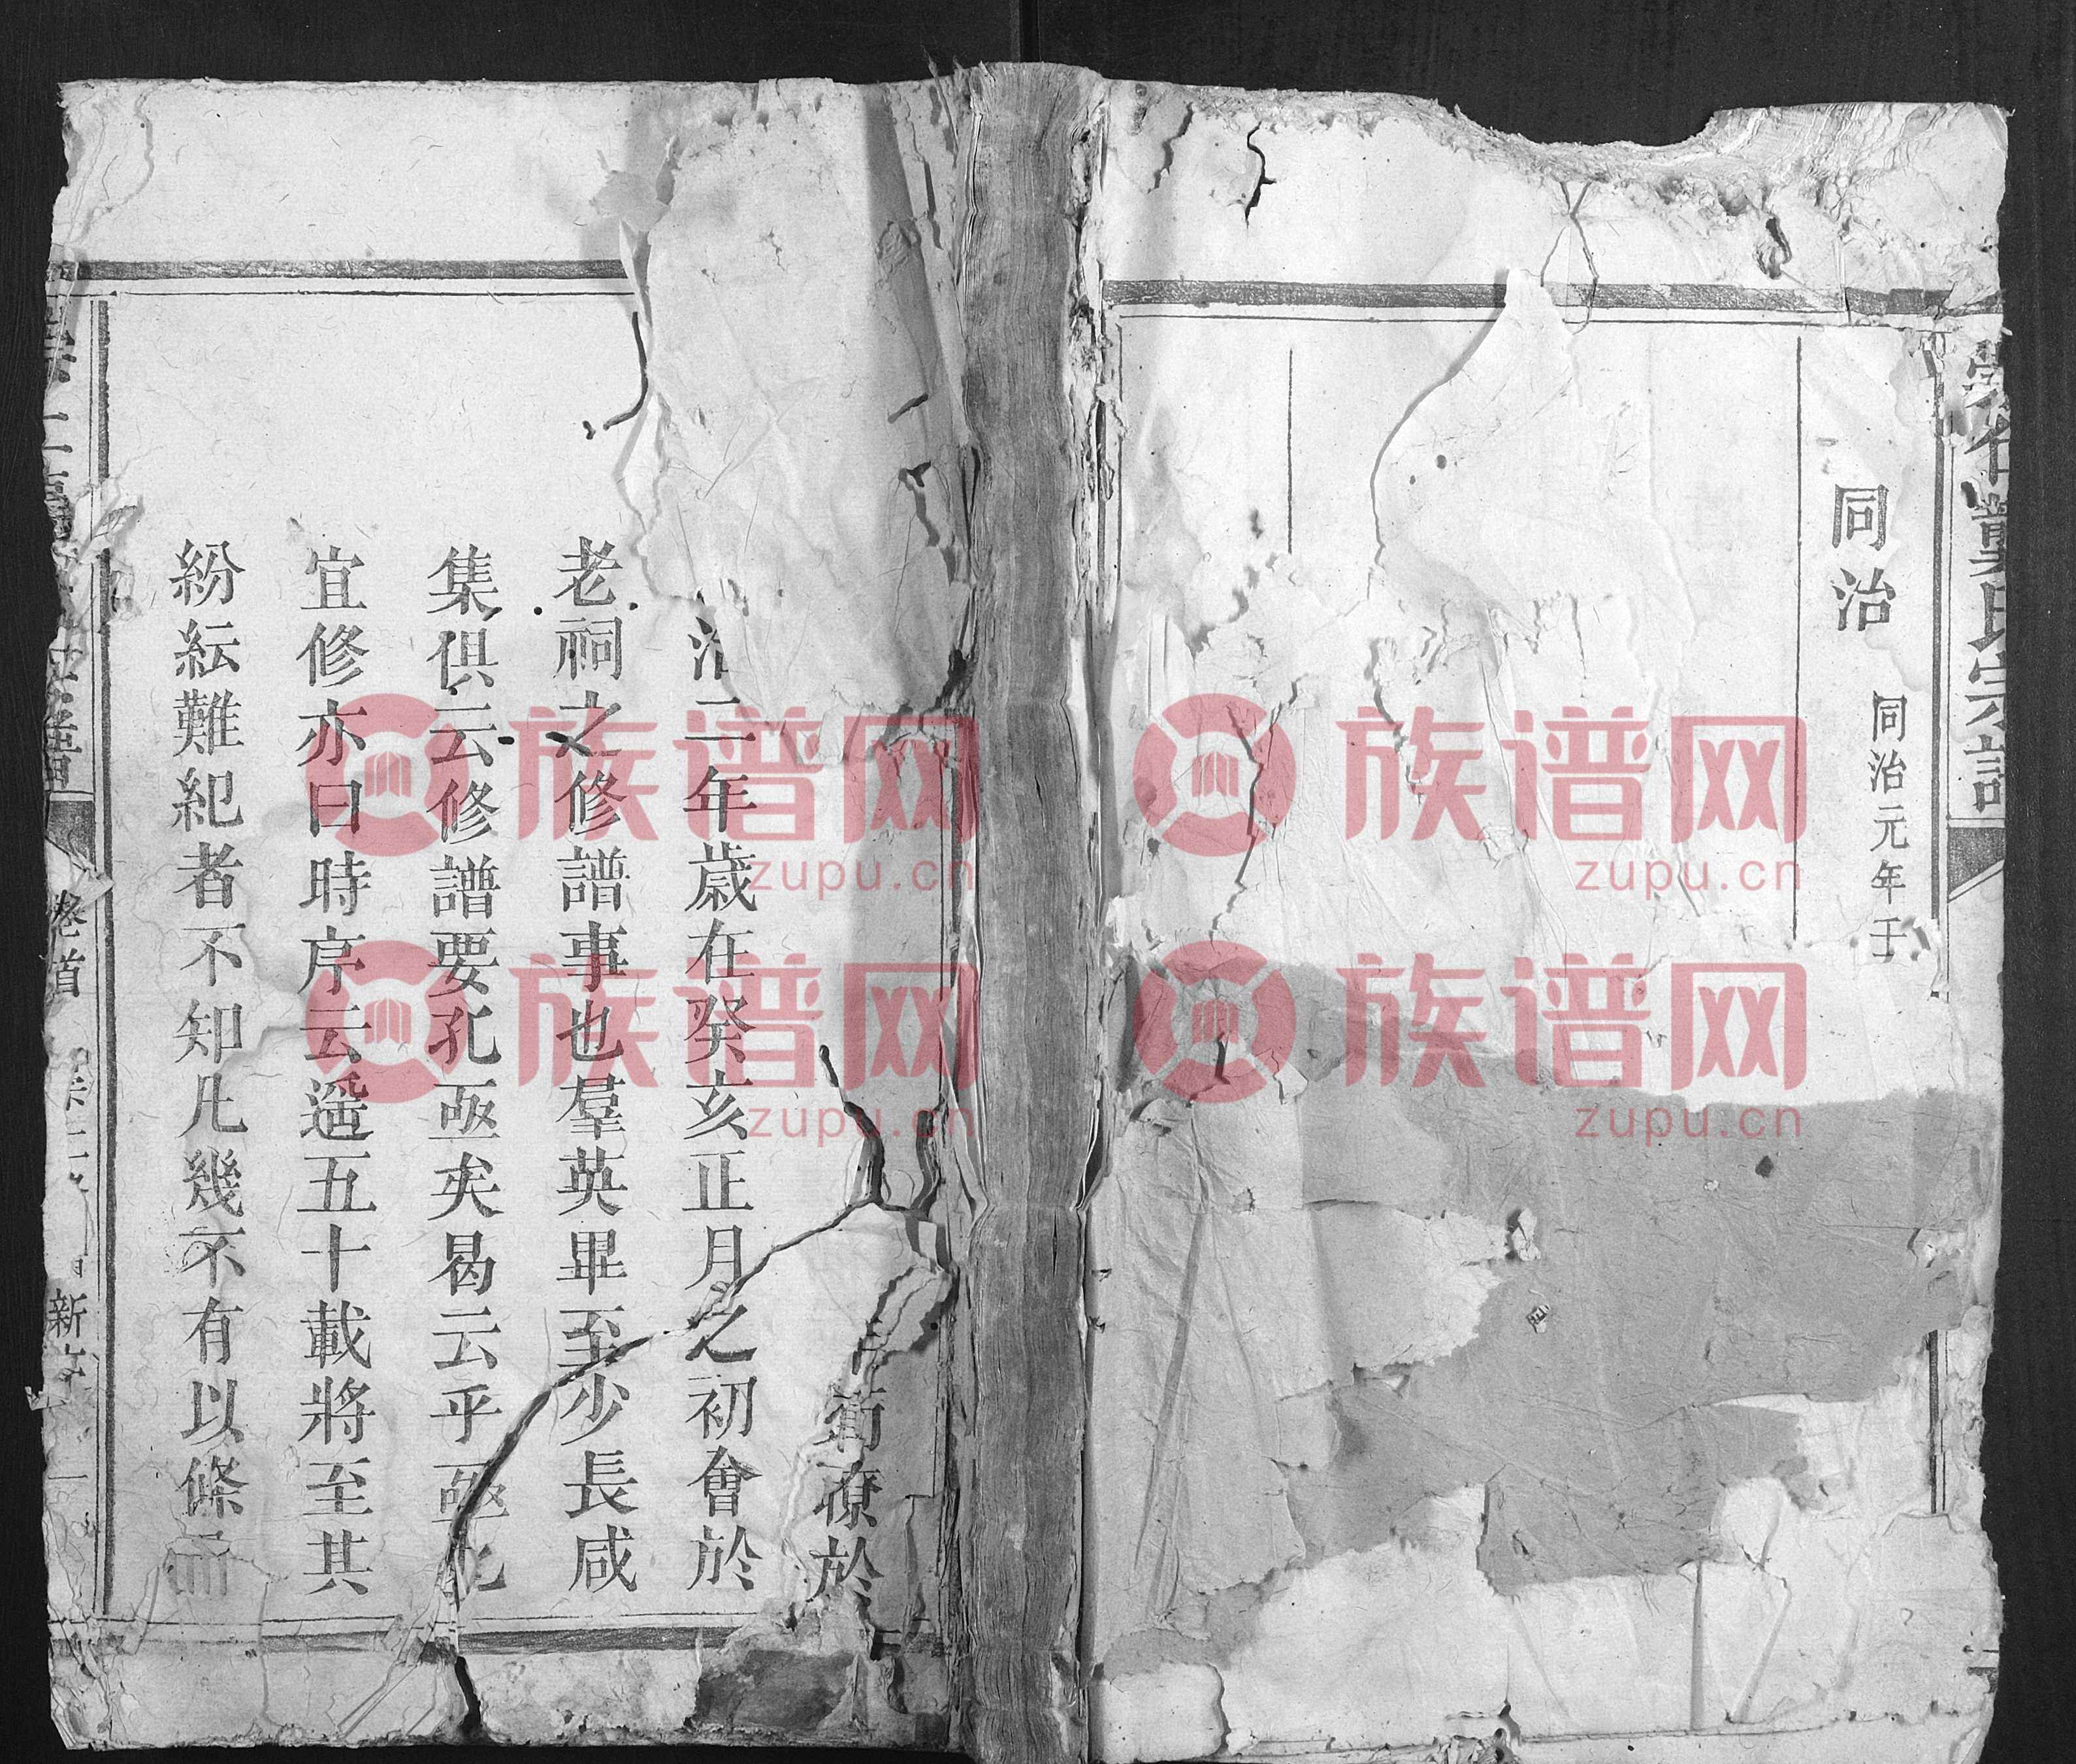 龔氏宗譜
同治
同治元年
於
二年歲在癸亥正月之初會於
老祠之修譜事也羣英畢至少長咸
集俱云修譜要孔亟矣曷云乎亟
宜修亦曰時序云遥五十載將至其
紛紜難紀者不知凡幾不有以條而
卷首
新
族谱网
zupu.cn
族谱网
zupu.cn
族谱网
zupu.cn
族谱网
zupu.cn